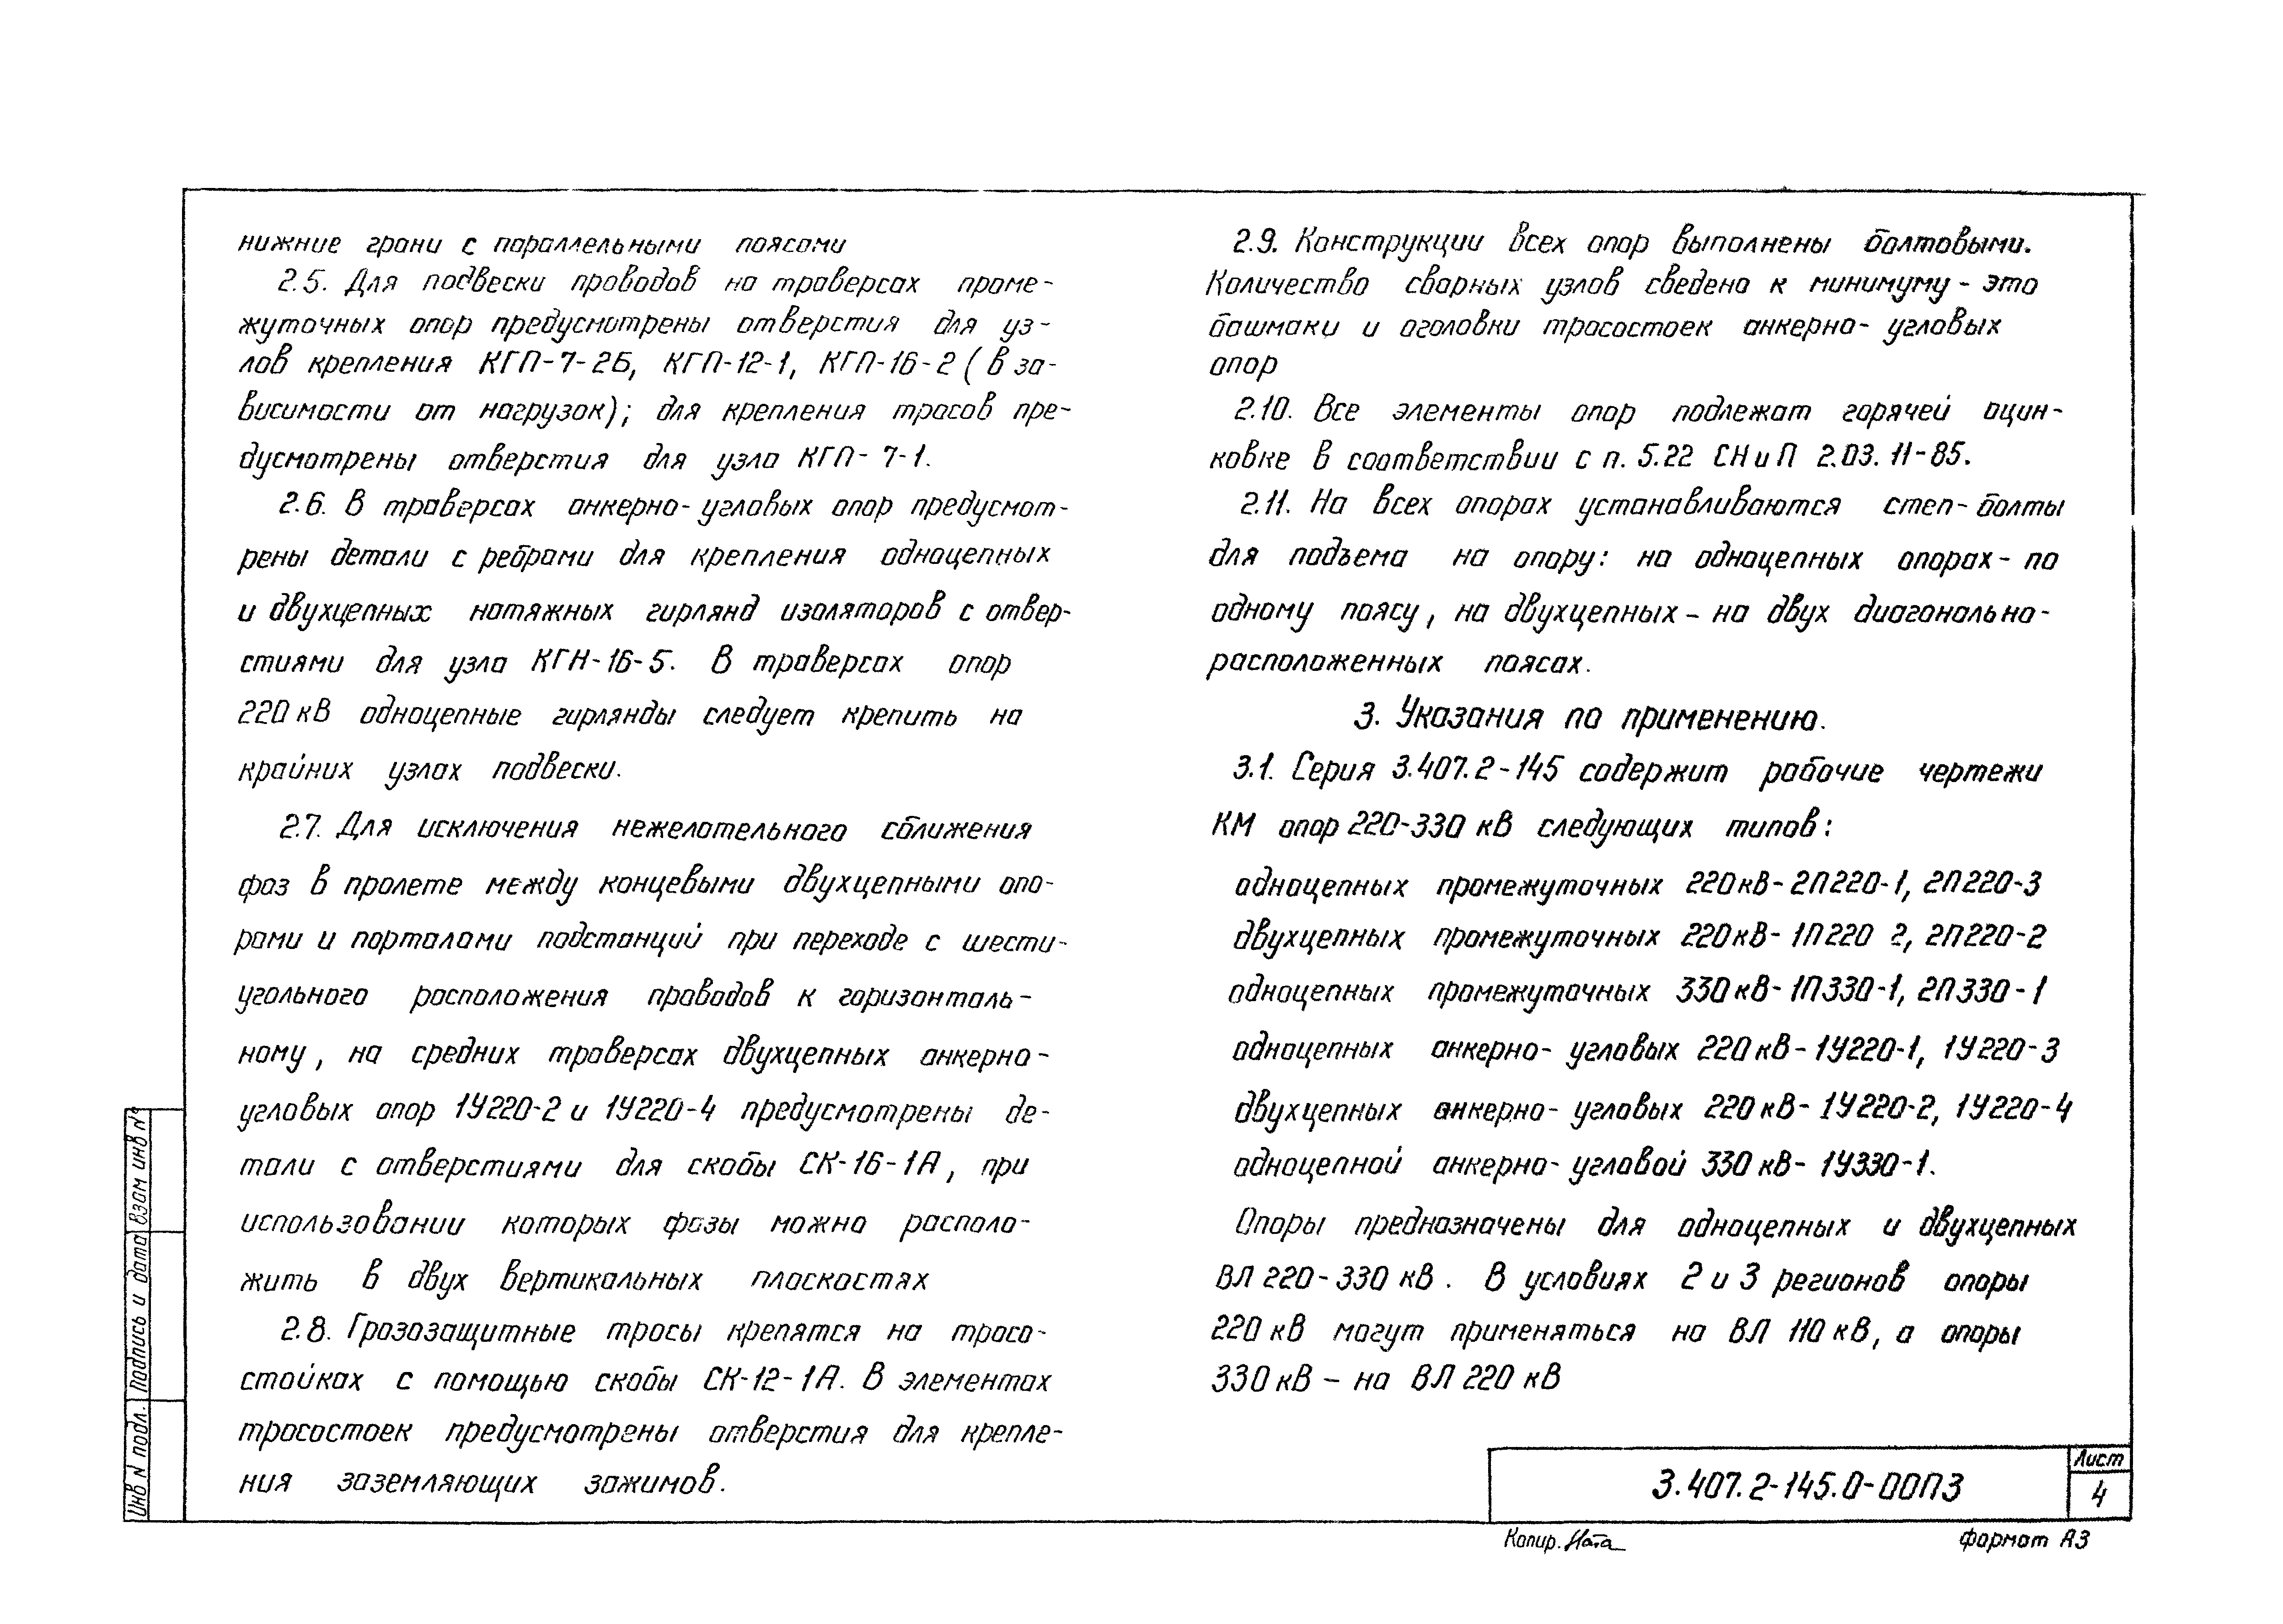 нижние грани с параллельными поясами
2.5. Для подвески проводов на траверсах проме-
жуточных опор предусмотрены отверстия для уз-
лов крепления КГП-7-2Б, КГП-12-1, КГП-16-2 (в за-
висимости от нагрузок); для крепления тросов пре-
дусмотрены отверстия для узла КГП-7-1.
2.6. В траверсах анкерно-угловых опор предусмот-
рены детали с ребрами для крепления одноцепных
и двухцепных натяжных гирлянд изоляторов с отвер-
стиями для узла КГН-16-5. В траверсах опор
220 кВ одноцепные гирлянды следует крепить на
крайних узлах подвески.
2.7. Для исключения нежелательного сближения
фаз в пролете между концевыми двухцепными опо-
рами и порталами подстанций при переходе с шести-
угольного расположения проводов к горизонталь-
ному, на средних траверсах двухцепных анкерно-
угловых опор 1У220-2 и 1У220-4 предусмотрены де-
тали с отверстиями для скобы СК-16-1А, при
использовании которых фазы можно располо-
жить в двух вертикальных плоскостях
2.8. Грозозащитные тросы крепятся на тросо-
стойках с помощью скобы СК-12-1А. В элементах
тросостоек предусмотрены отверстия для крепле-
ния заземляющих зажимов.
2.9. Конструкции всех опор выполнены болтовыми.
Количество сварных узлов сведено к минимуму - это
башмаки и оголовки тросостоек анкерно-угловых
опор
2.10. Все элементы опор подлежат горячей оцин-
ковке в соответствии с п. 5.22 СНиП 2.03.11-85.
2.11. На всех опорах устанавливаются степ-болты
для подъема на опору: на одноцепных опорах - по
одному поясу, на двухцепных - на двух диагонально-
расположенных поясах.
3. Указания по применению.
3.1. Серия 3.407.2-145 содержит рабочие чертежи
КМ опор 220-330 кВ следующих типов:
одноцепных промежуточных 220кВ - 2П220-1, 2П220-3
двухцепных промежуточных 220кВ - 1П220 2, 2П220-2
одноцепных промежуточных 330кВ - 1П330-1, 2П330-1
одноцепных анкерно-угловых 220кВ - 1У220-1, 1У220-3
двухцепных анкерно-угловых 220кВ - 1У220-2, 1У220-4
одноцепной анкерно-угловой 330кВ - 1У330-1.
Опоры предназначены для одноцепных и двухцепных
ВЛ 220-330 кВ. В условиях 2 и 3 регионов опоры
220 кВ могут применяться на ВЛ 110 кВ, а опоры
330 кВ - на ВЛ 220 кВ
Инв N подл. Подпись и дата Взам инв №
3.407.2-145.0-00ПЗ
Лист
4
Копир. Ната
Формат А3